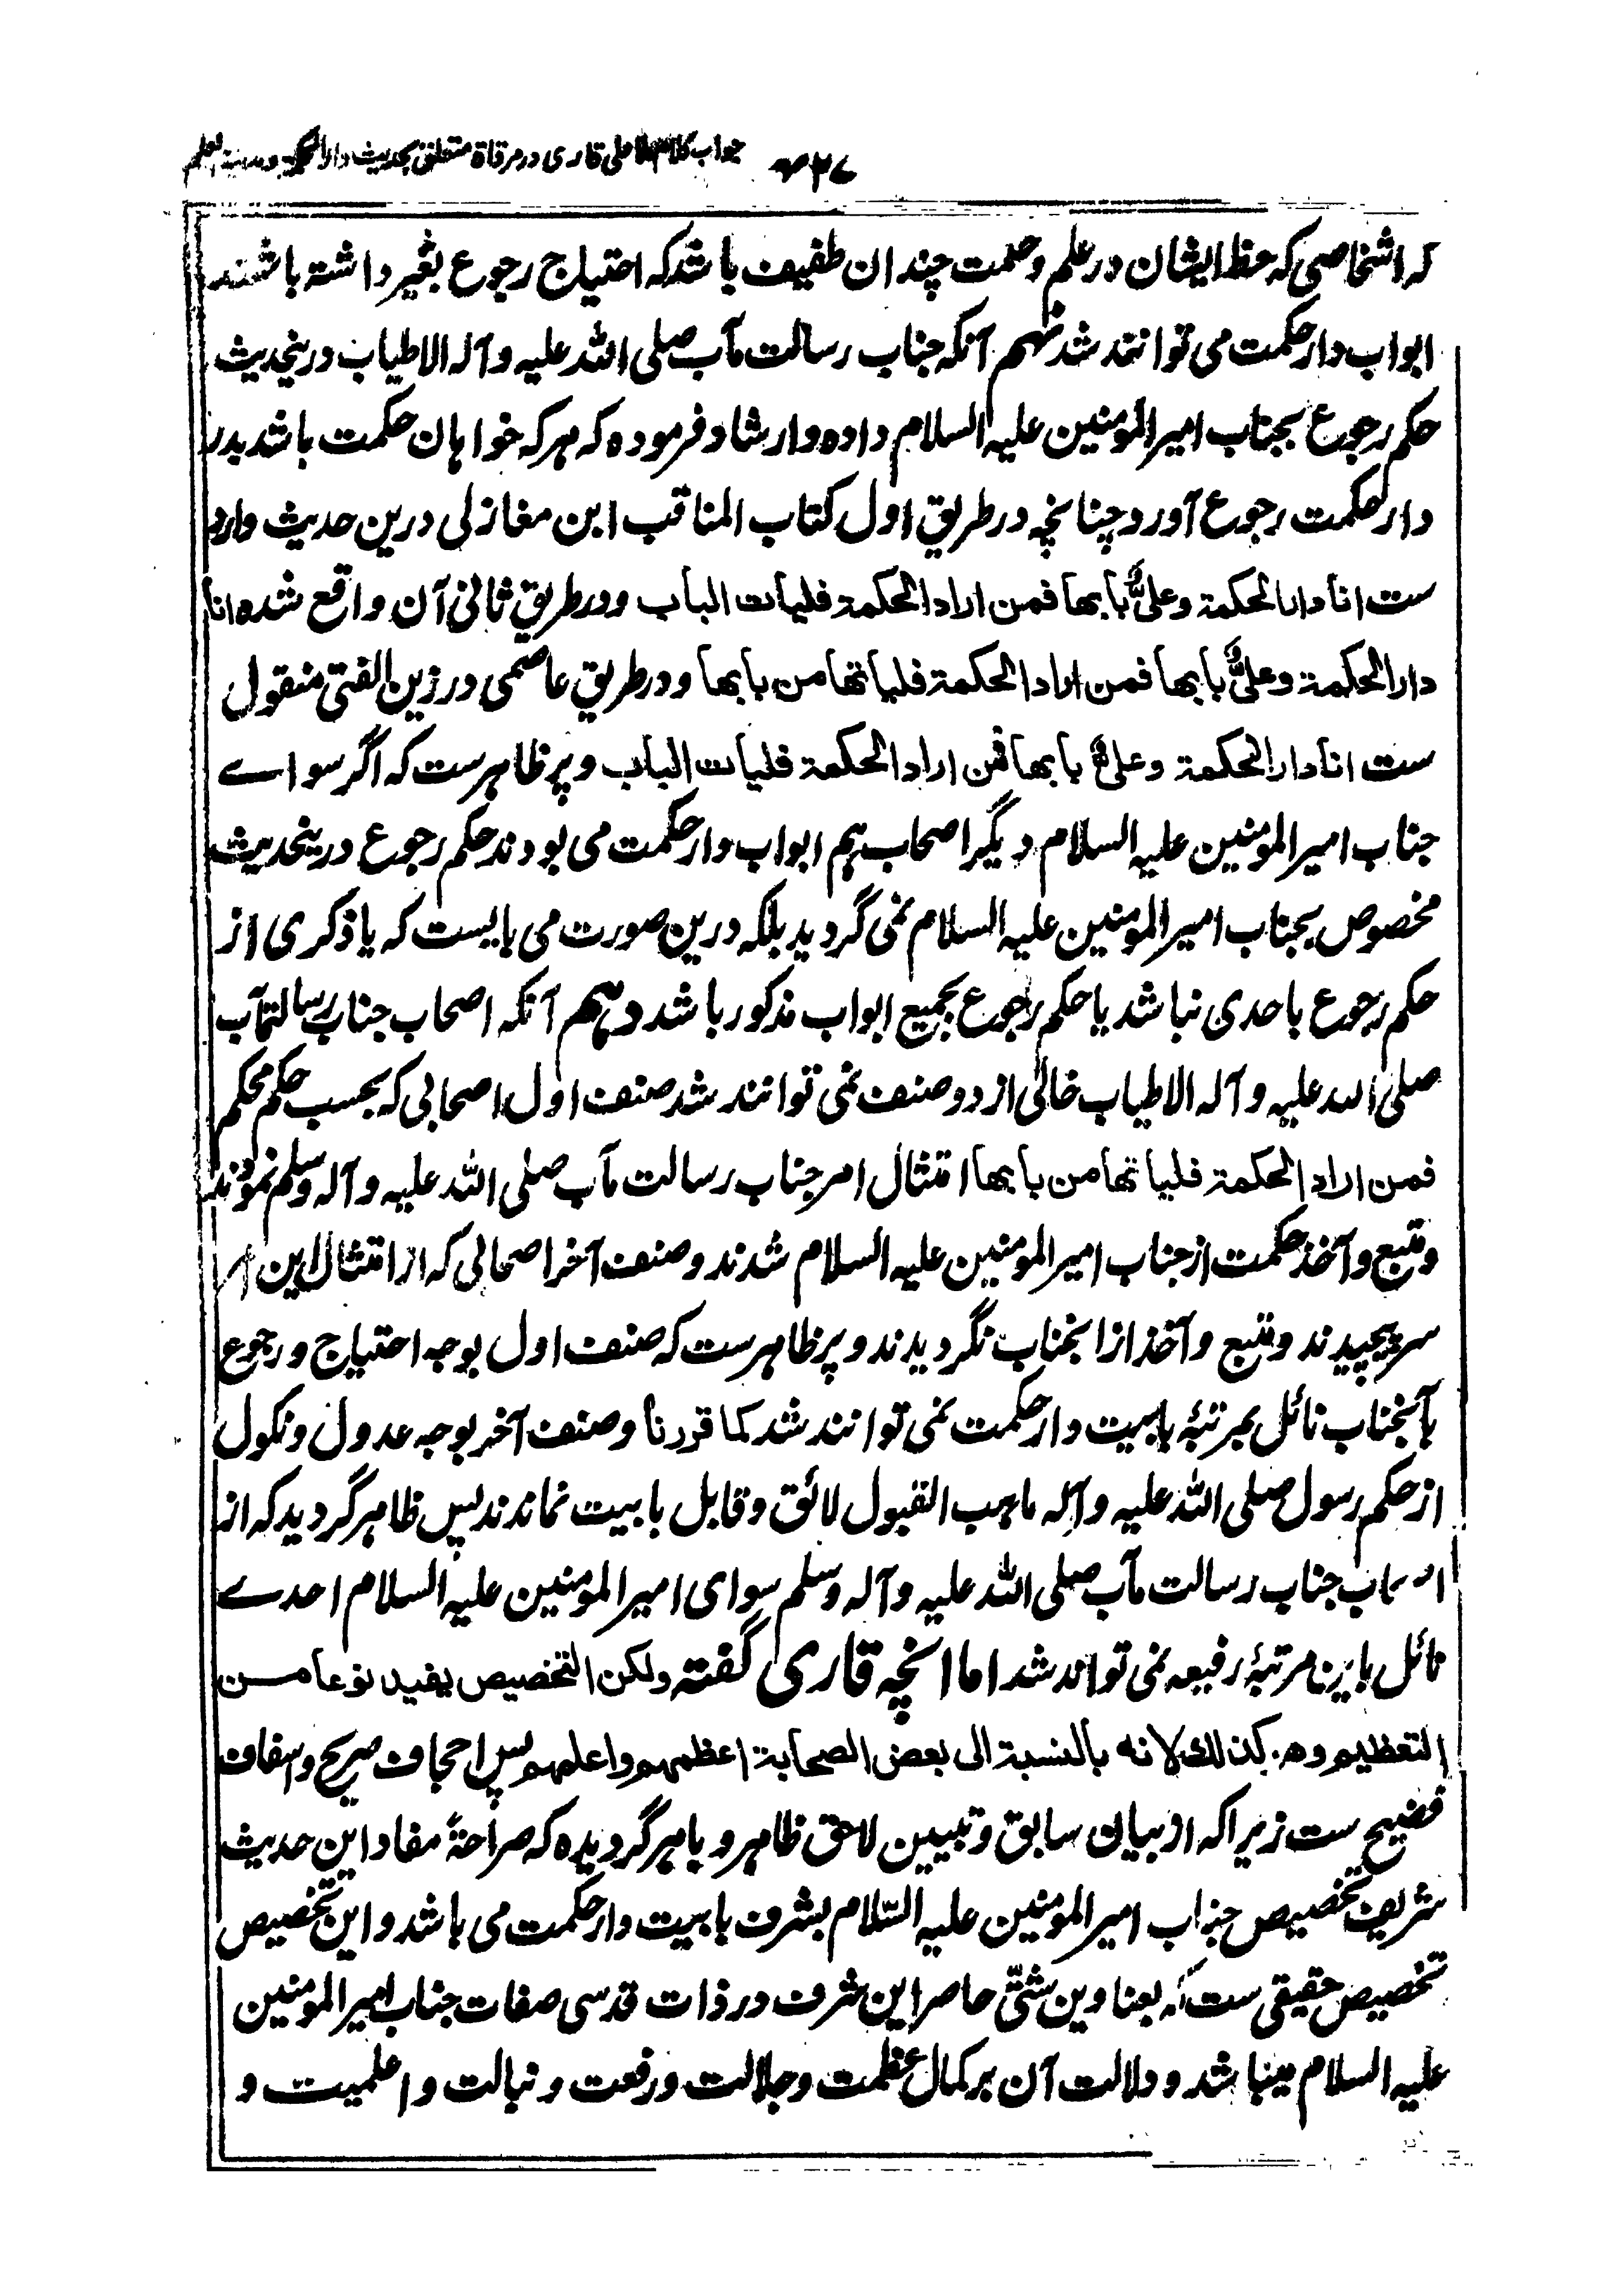 جواب کلام ملا علی قاری در مرقاة متعلق بحدیث دار الحکمة و مدینة العلم
که اشخاصی که حظ ایشان در علم و حکمت چندان طفیف باشد که احتیاج رجوع بغیر داشته باشند
ابواب دار حکمت می توانند شد نهم آنکه جناب رسالت مآب صلی الله علیه و آله الاطیاب درینحدیث
حکم رجوع بجناب امیر المؤمنین علیه السلام داده و ارشاد فرموده که هر که خواهان حکمت باشد بدر
دار حکمت رجوع آورد چنانچه در طریق اول کتاب المناقب ابن مغازلی درین حدیث وارد
ست انا دار الحکمة و علیٌّ بابها فمن اراد الحکمة فلیات الباب و در طریق ثانی آن واقع شده انا
دار الحکمة و علیٌّ بابها فمن اراد الحکمة فلیاتها من بابها و در طریق عاصمی در زین الفتی منقول
ست انا دار الحکمة و علیٌّ بابها فمن اراد الحکمة فلیات الباب و پر ظاهرست که اگر سواے
جناب امیر المؤمنین علیه السلام دیگر اصحاب هم ابواب دار حکمت می بودند حکم رجوع درینحدیث
مخصوص بجناب امیر المؤمنین علیه السلام نمی گردید بلکه درین صورت می بایست که یا ذکری از
حکم رجوع باحدی نباشد یا حکم رجوع بجمیع ابواب مذکور باشد دهم آنکه اصحاب جناب رسالتمآب
صلی الله علیه و آله الاطیاب خالی از دو صنف نمی توانند شد صنف اول اصحابی که بحسب حکم محکم
فمن اراد الحکمة فلیاتها من بابها امتثال امر جناب رسالت مآب صلی الله علیه و آله وسلم نمودند
و متبع و آخذ حکمت از جناب امیر المؤمنین علیه السلام شدند و صنف آخر اصحابی که از امتثال این امر
سر پیچیدند و متبع و آخذ از انجناب نگردیدند و پر ظاهرست که صنف اول بوجه احتیاج و رجوع
بآنجناب نائل بمرتبۀ بابیت دار حکمت نمی توانند شد کما قررنا و صنف آخر بوجه عدول و نکول
از حکم رسول صلی الله علیه و آله ما هب القبول لائق و قابل بابیت نماندند پس ظاهر گردید که از
اصحاب جناب رسالت مآب صلی الله علیه و آله وسلم سوای امیر المؤمنین علیه السلام احدے
نائل باین مرتبۀ رفیعه نمی تواند شد اما آنچه قاری گفته ولکن التخصیص یفید نوعا من
التعظیم وهو کذلك لانه بالنسبة الی بعض الصحابة اعظمهم واعلمهم پس اجحاف صریح و اسفاف
فضیح ست زیرا که از بیان سابق و تبیین لاحق ظاهر و باهر گردیده که صراحةً مفاد این حدیث
شریف تخصیص جناب امیر المؤمنین علیه السّلام بشرف بابیت دار حکمت می باشد و این تخصیص
تخصیص حقیقی ست که بعناوین شتّی حاصر این شرف در ذات قدسی صفات جناب امیر المؤمنین
علیه السلام میباشد و دلالت آن بر کمال عظمت و جلالت و رفعت و نبالت و اعلمیت و